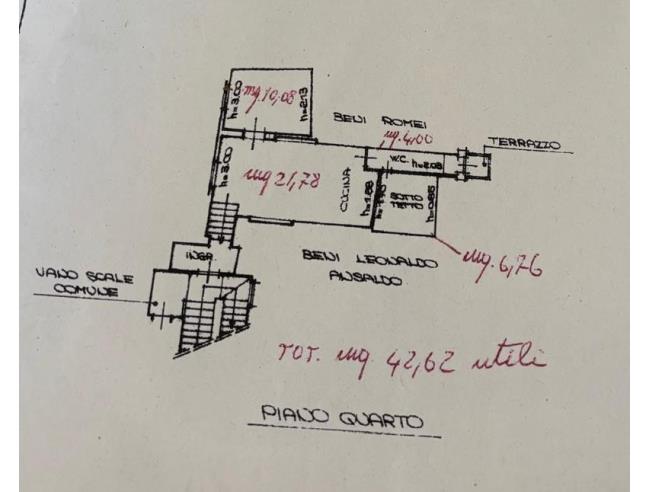 mq. 10,08
h=3.00
h=2.13
BENI ROMEI
mq. 4,00
TERRAZZO
W.C. h=2.08
h=3.00
mq 21,78
CUCINA
h=1.88
SOTTO
TETTO
h=0.85
INGR.
BENI LEONALDO
ANSALDO
mq. 6,76
VANO SCALE
COMUNE
TOT. mq. 42,62 utili
PIANO QUARTO